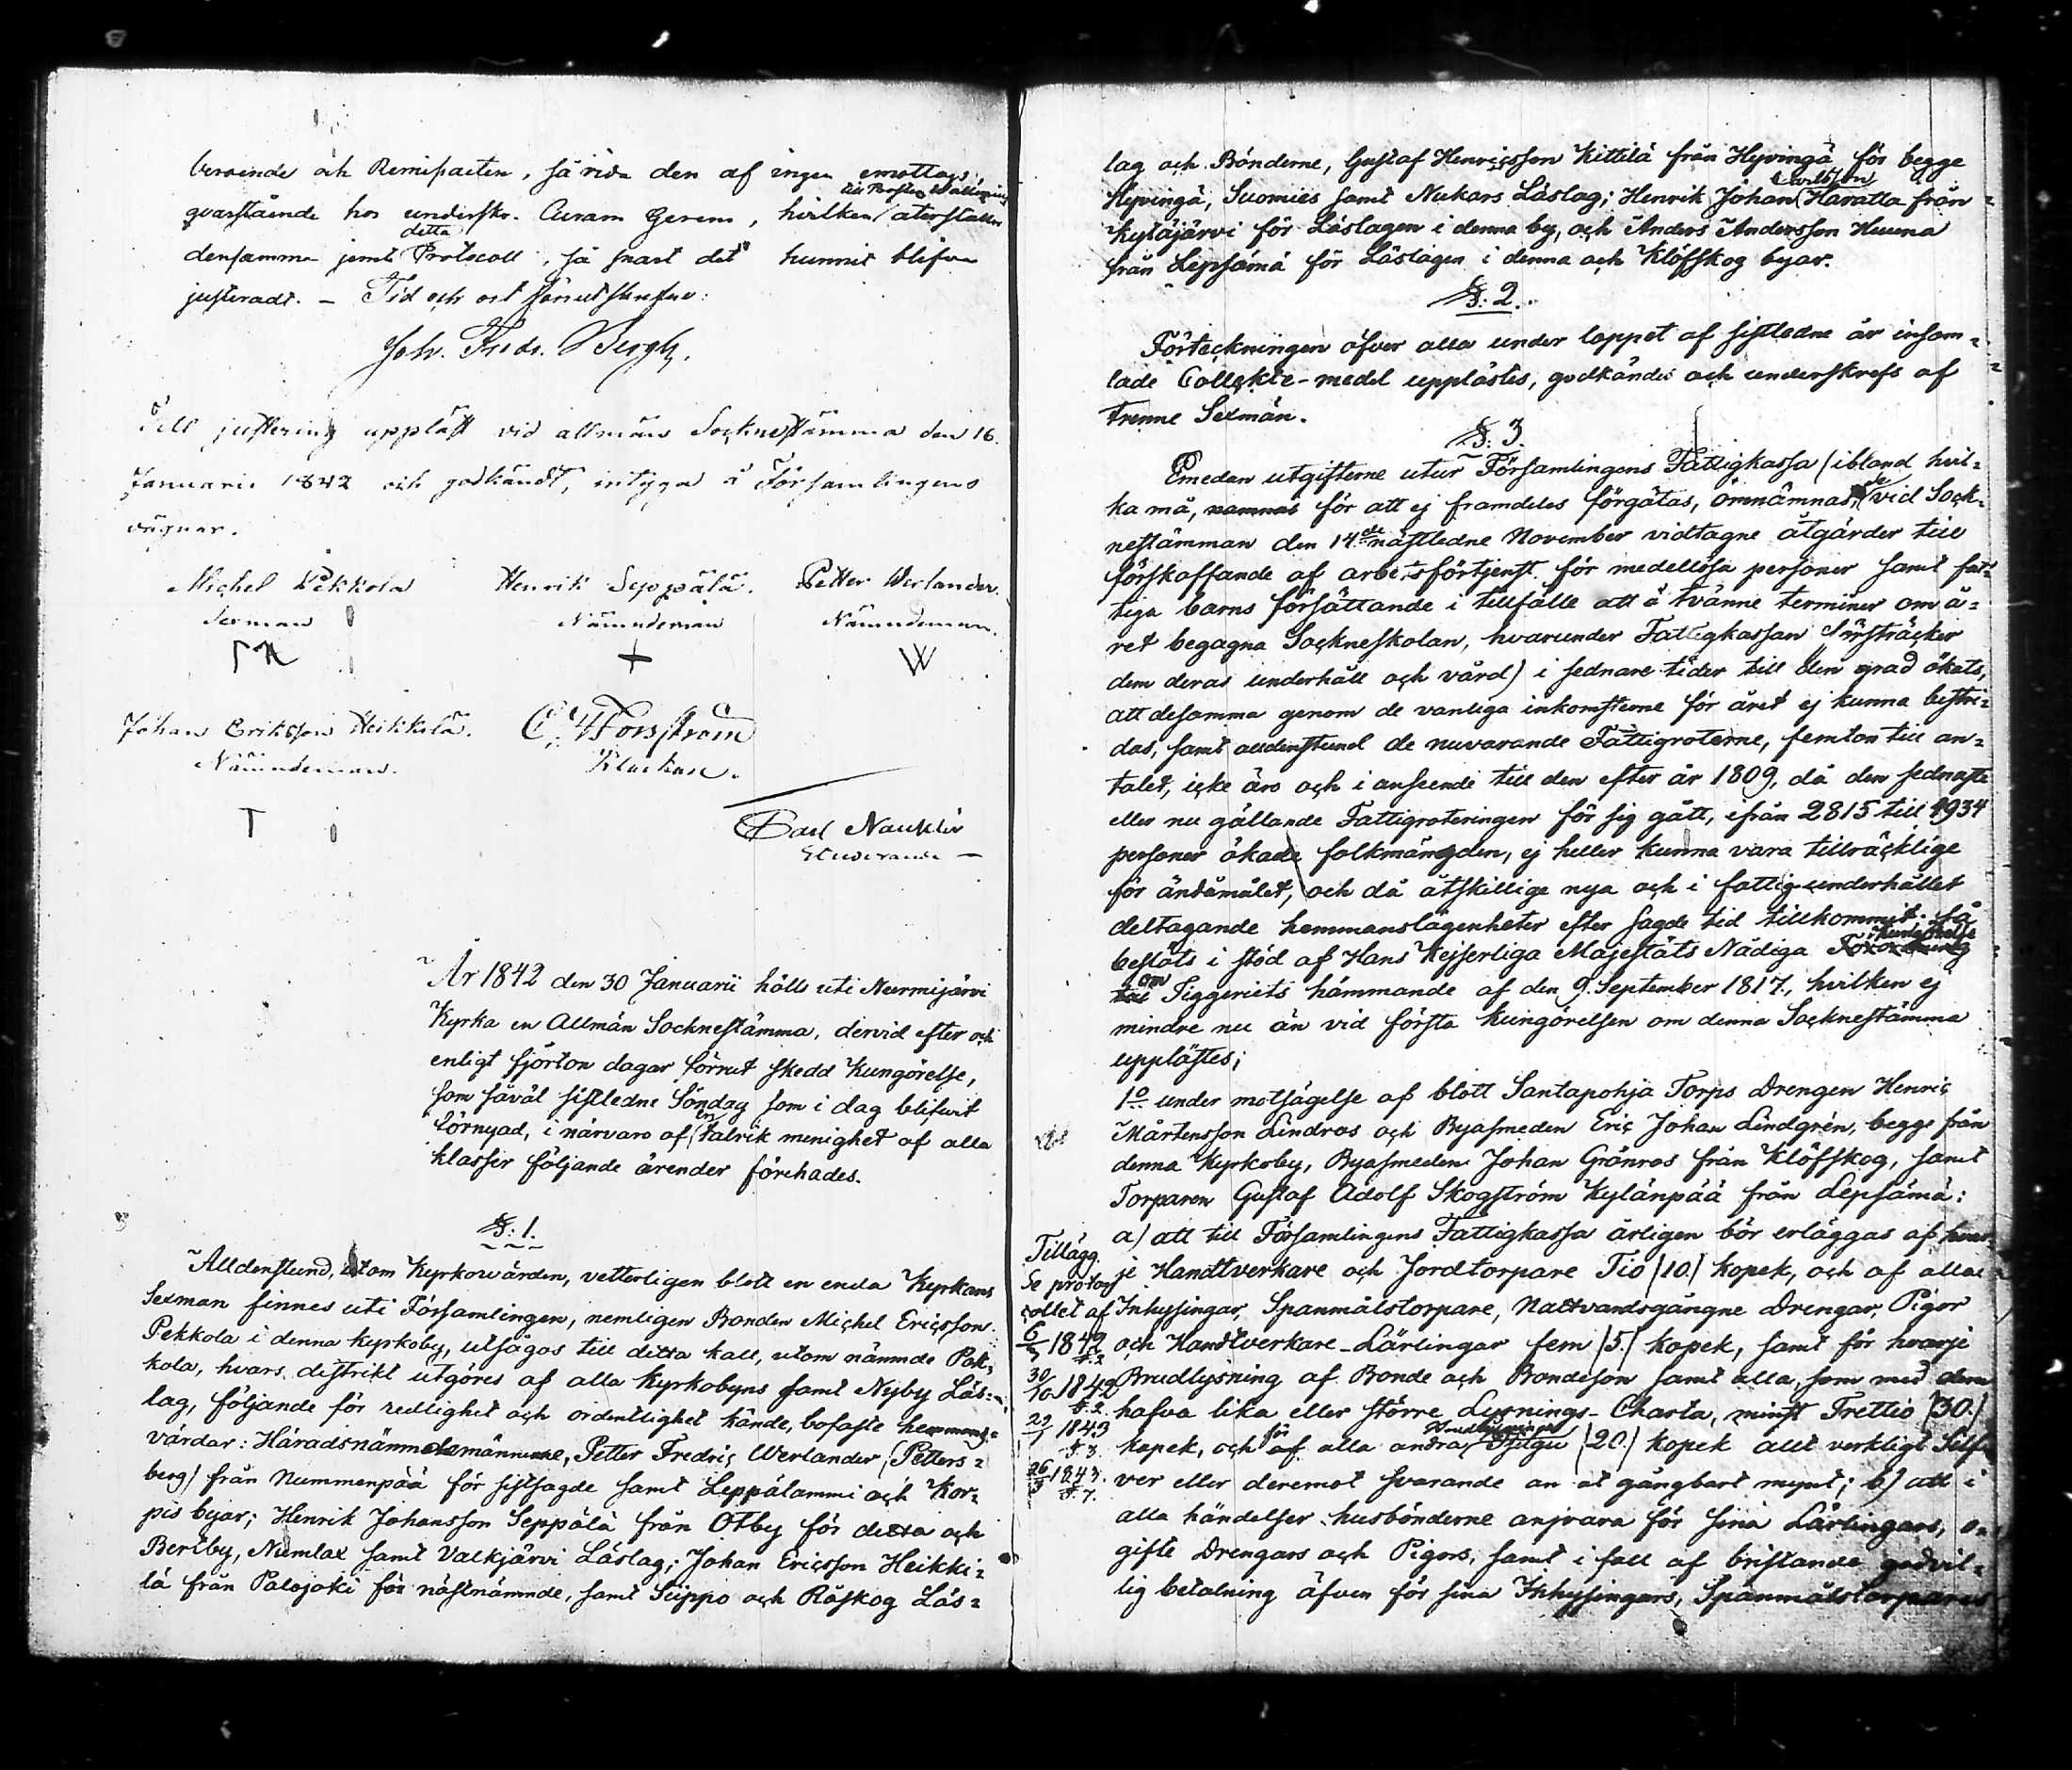 beroende och Remissacten, så vida den af ingen emottags,
qvarstående hos underskr. Curam Gerens, hvilken återställer
densamma jemte detta Protocoll, så snart det hunnit blifva
justeradt. — Tid och ort förutskrefne:
Joh. Fredr. Bergh.
Till justering uppläst vid allmän Sockneſtämma den 16.
Januarii 1842 och godkändt, intyga å Församlingens
vägnar.
Michel Pekkola Henrik Seppälä. Petter Werlander.
Sexman Nämndeman Nämndeman.
Johan Eriksson Heikkilä. C. Forsström
Nämndeman. Klockare.
Carl Nauklér
Studerande —
År 1842 den 30 Januarii hölls uti Nurmijärvi
Kyrka en Allmän Socknestämma, dervid efter och
enligt fjorton dagar förrut skedd Kungörelse,
som såväl sistledne Söndag som i dag blifvit
förnyad, i närvaro af en talrik menighet af alla
klasser följande ärender förehades.
§: 1.
Alldenstund, utom Kyrkowärden, vetterligen blott en enda Kyrkans
Sexman finnes uti Församlingen, nemligen Bonden Michel Ericsson
Pekkola i denna kyrkoby, utsågos till detta kall, utom nämnde Pek-
kola, hvars distrikt utgöres af alla Kyrkobyns samt Nyby Läs-
lag, följande för redlighet och ordentlighet kände, bofaste hemmans-
värdar: Häradsnämndemännerne, Petter Fredric Werlander (Petters-
berg) från Nummenpää för sistsagde samt Leppälammi och Kor-
pis byar; Henrik Johansson Seppälä från Otby för detta och
Bertby, Numlax samt Valkjärvi Läslag; Johan Ericsson Heikki-
lä från Palojoki för nästnämnde, samt Siippo och Råskog Läs-
lag och Bönderne, Gustaf Henricsson Kittilä från Hyvingä för begge
Hyvingä, Suomies samt Nukars Läslag; Henrik Johan Haratta från
Kytäjärvi för Läslagen i denna by, och Anders Andersson Huuna
från Lepsämä för Läslagen i denna och Klöfskog byar.
§: 2.
Förteckningen öfver alla under loppet af sistledne år insam-
lade Collekte-medel upplästes, godkändes och underskrefs af
trenne Sexmän.
§: 3.
Emedan utgifterne utur Församlingens Fattigkassa (ibland hvil-
ka må, namnas för att ej framdeles förgätas, omnämnas, de vid Sock-
nestämman den 14de nästledne November vidtagne åtgärder till
förskaffande af arbetsförtjenst för medellösa personer samt fat-
tiga barns försättande i tillfälle att å tvänne terminer om å-
ret begagna Sockneskolan, hvarunder Fattigkassan försträcker
dem deras underhåll och vård) i sednare tider till den grad ökats,
att desamma genom de vanliga inkomsterne för året ej kunna bestri-
das, samt alldenstund de nuvarande Fattigroterne, femton till an-
talet, icke äro och i anseende till den efter år 1809, då den sednaste
eller nu gällande Fattigroteringen för sig gått, ifrån 2815 till 4934
personer ökade folkmängden, ej heller kunna vara tillräcklige
för ändamålet, och då åtskillige nya och i fattig-underhållet
deltagande hemmanslägenheter efter sagde tid tillkommit; så
beslöts i stöd af Hans Kejserliga Majestäts Nådiga Förordning Kungörelse
om Tiggeriets hämmande af den 9. September 1817, hvilken ej
mindre nu än vid första Kungörelsen om denna Socknestämma
upplästes;
1o under motsägelse af blott Santapohja Torps Drengen Henric
Mårtensson Lindros och Byasmeden Eric Johan Lindgrén, begge från
denna Kyrkoby, Byasmeden Johan Grönros från Klöfskog, samt
Torparen Gustaf Adolf Skogström Kylänpää från Lepsämä:
a) att till Församlingens Fattigkassa årligen bör erläggas af hvar-
je Handtverkare och Jordtorpare Tio (10.) kopek, och af alla
Inhysingar, Spanmålstorpare, Nattvardsgångne Drengar, Pigor
och Handtverkare-Lärlingar fem (5.) kopek, samt för hvarje
Brudlysning af Bonde och Bondeson samt alla, som med dem
hafva lika eller större Lysnings-Charta, minst Trettio (30.)
kopek, och för af alla andra (20.) kopek allt verkligt Silf-
ver eller deremot svarande an at gångbart mynt; b) att i
alla händelser husbönderne ansvara för sina Lärlingars, o-
gifte Drengars och Pigors, samt i fall af bristande godvil-
lig betalning äfven för sina Inhysingars, Spanmålstorpares
Tillägg.
Se protoc-
collet af
6/3 1842
§. 2
30/10 1842
§. 2.
29/1 1843
§. 3
26/3 1843.
§. 7.